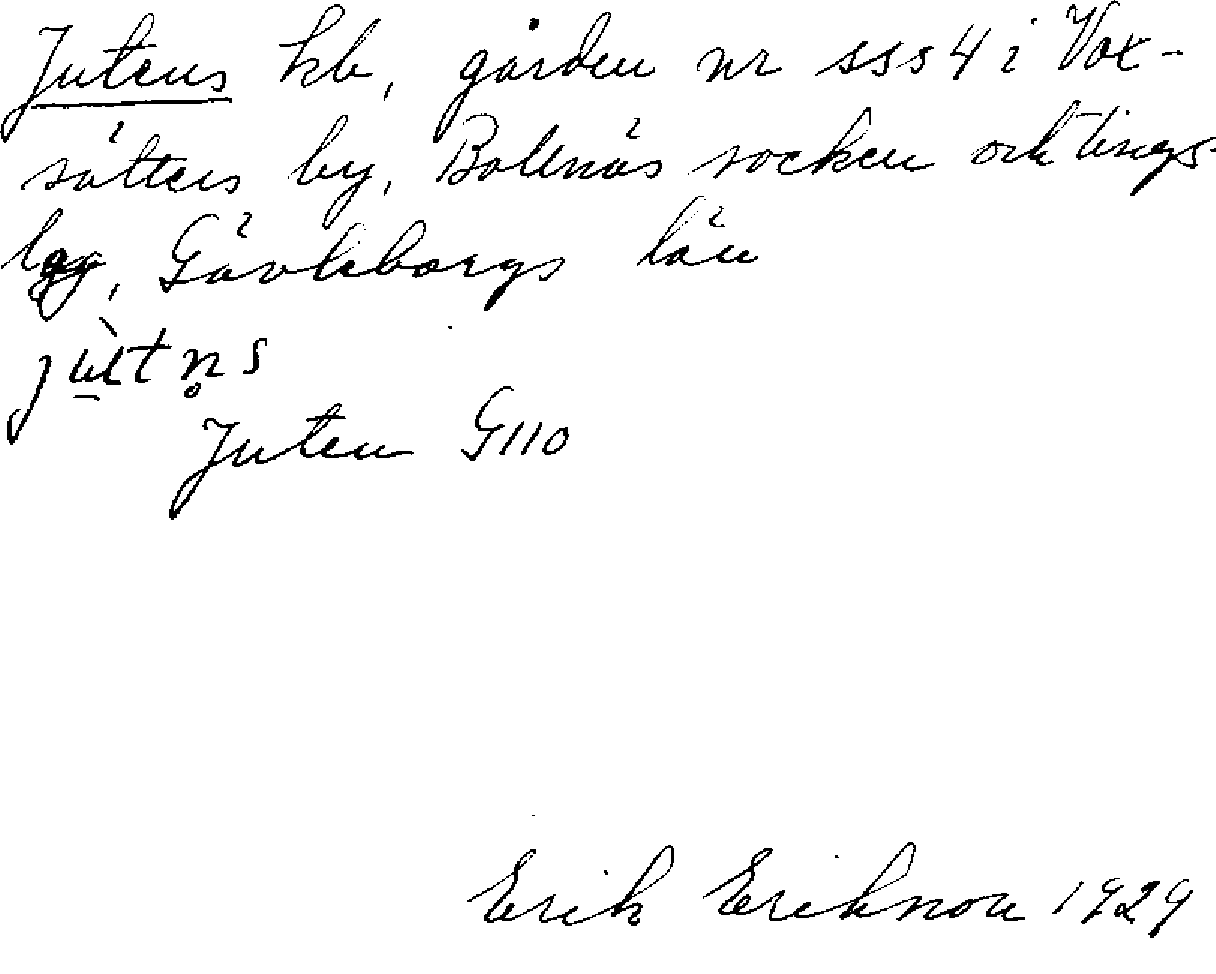 Jutens hb, gården nr sss 4 i Vox-
sätters by, Bollnäs socken och tings-
lag, Gävleborgs län
Juten G110
Erik Eriksson 1929